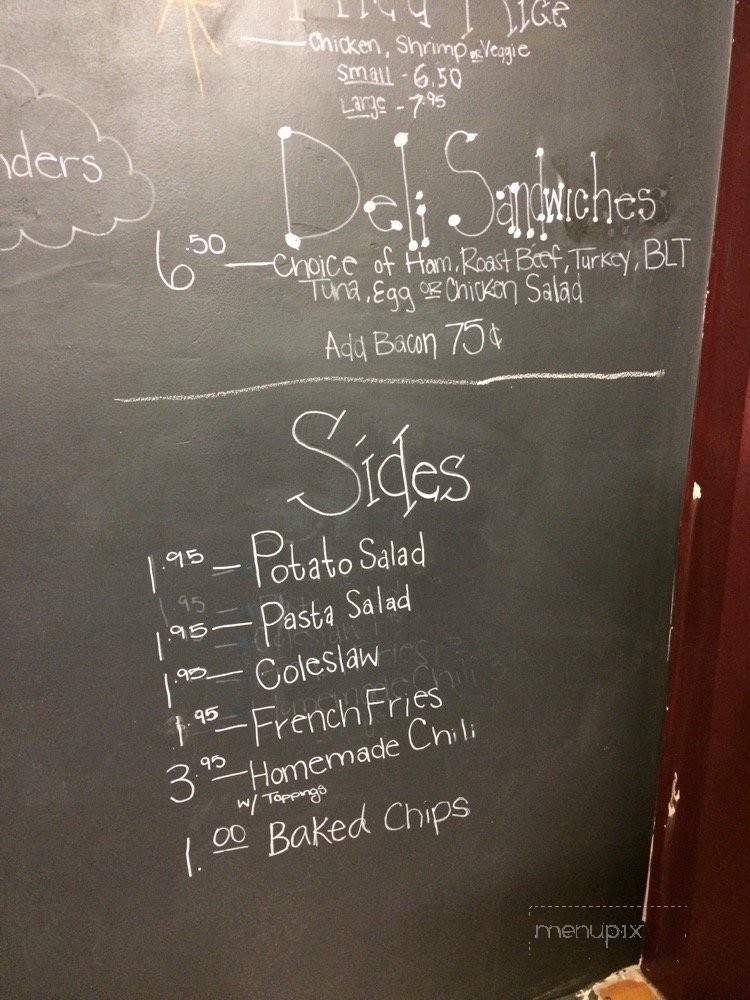 Fried Rice
Chicken, Shrimp or Veggie
Small - 6.50
Large - 7.95
nders
Deli Sandwiches
6.50 — Choice of Ham, Roast Beef, Turkey, BLT
Tuna, Egg or Chicken Salad
Add Bacon 75¢
Sides
1.95 — Potato Salad
1.95 — Pasta Salad
1.95 — Coleslaw
1.95 — French Fries
3.95 — Homemade Chili
w/ Toppings
1.00 Baked Chips
menupix